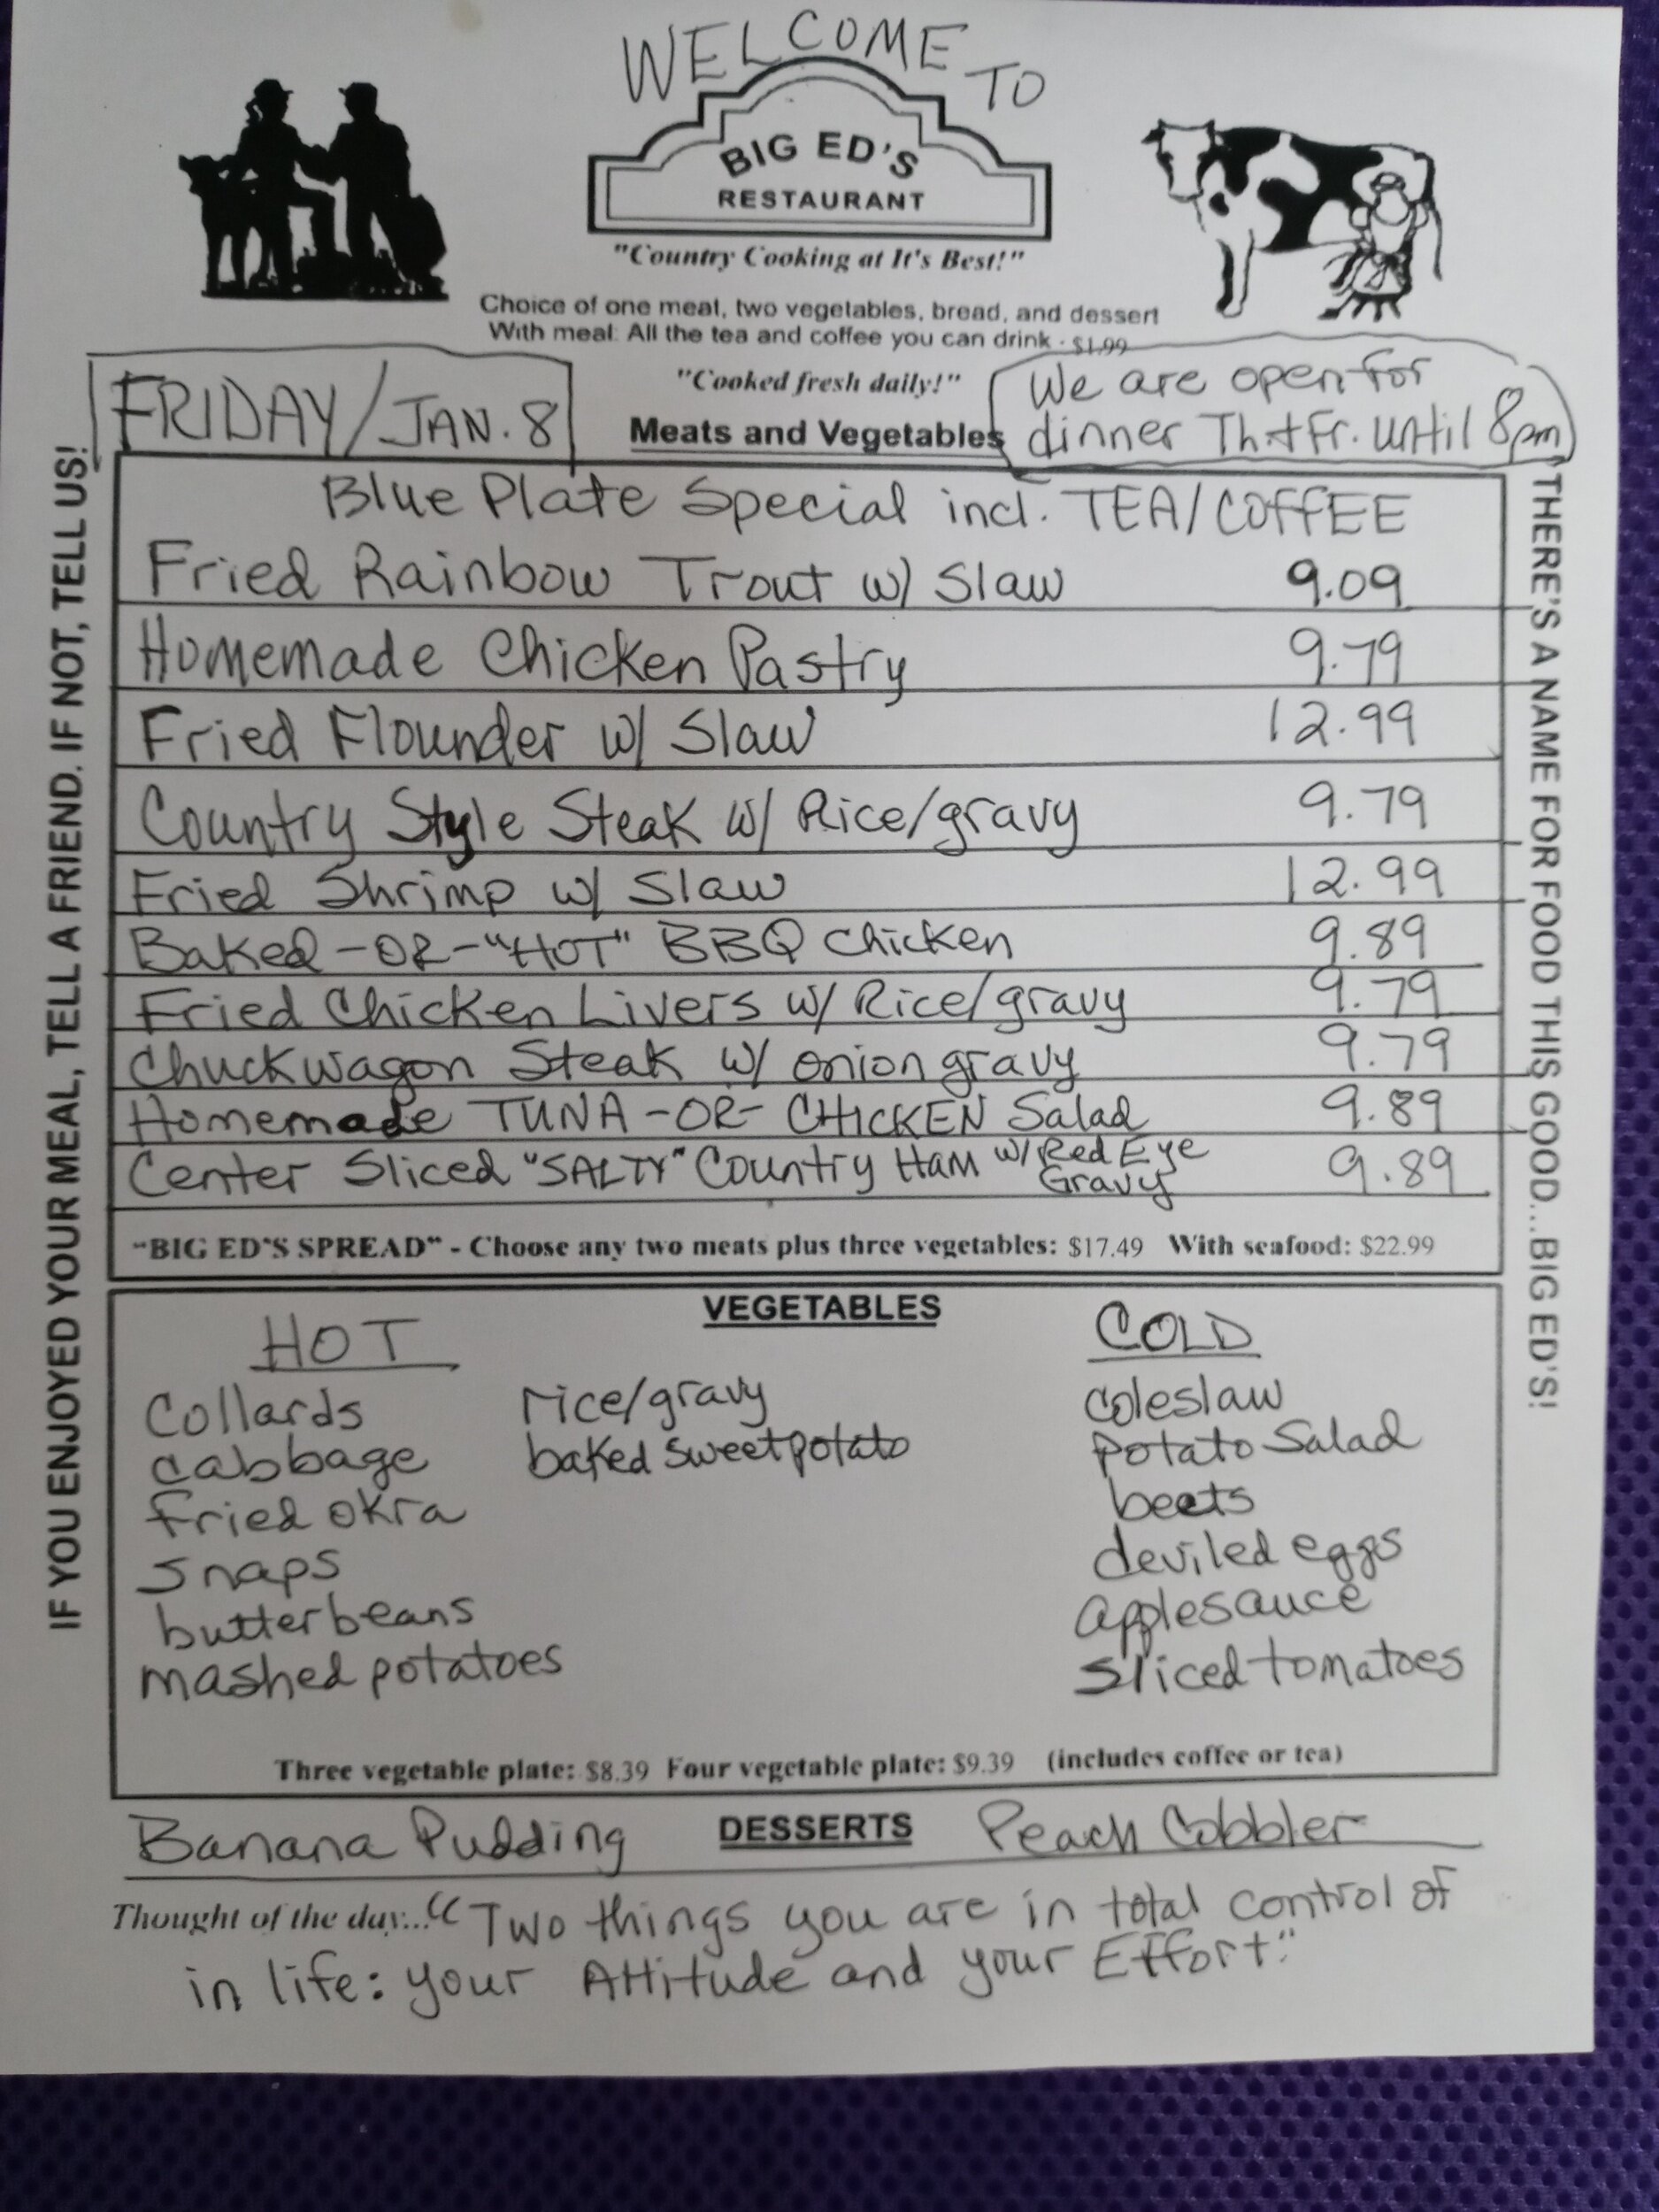 WELCOME TO
BIG ED'S
RESTAURANT
"Country Cooking at It's Best!"
Choice of one meat, two vegetables, bread, and dessert
With meal: All the tea and coffee you can drink - $1.99
"Cooked fresh daily!"
FRIDAY/JAN. 8
Meats and Vegetables
We are open for
dinner Th.+Fr. until 8pm
Blue Plate Special incl. TEA/COFFEE
Fried Rainbow Trout w/ Slaw 9.09
Homemade Chicken Pastry 9.79
Fried Flounder w/ Slaw 12.99
Country Style Steak w/ Rice/gravy 9.79
Fried Shrimp w/ Slaw 12.99
Baked -OR- "HOT" BBQ Chicken 9.89
Fried Chicken Livers w/ Rice/gravy 9.79
Chuckwagon Steak w/ onion gravy 9.79
Homemade TUNA -OR- CHICKEN Salad 9.89
Center Sliced "SALTY" Country Ham w/ Red Eye Gravy 9.89
"BIG ED'S SPREAD" - Choose any two meats plus three vegetables: $17.49 With seafood: $22.99
VEGETABLES
HOT
COLD
Collards rice/gravy coleslaw
cabbage baked sweet potato potato Salad
fried okra beets
snaps deviled eggs
butterbeans applesauce
mashed potatoes sliced tomatoes
Three vegetable plate: $8.39 Four vegetable plate: $9.39 (includes coffee or tea)
Banana Pudding DESSERTS Peach Cobbler
Thought of the day..."Two things you are in total control of
in life: your Attitude and your Effort."
IF YOU ENJOYED YOUR MEAL, TELL A FRIEND. IF NOT, TELL US!
THERE'S A NAME FOR FOOD THIS GOOD...BIG ED'S!